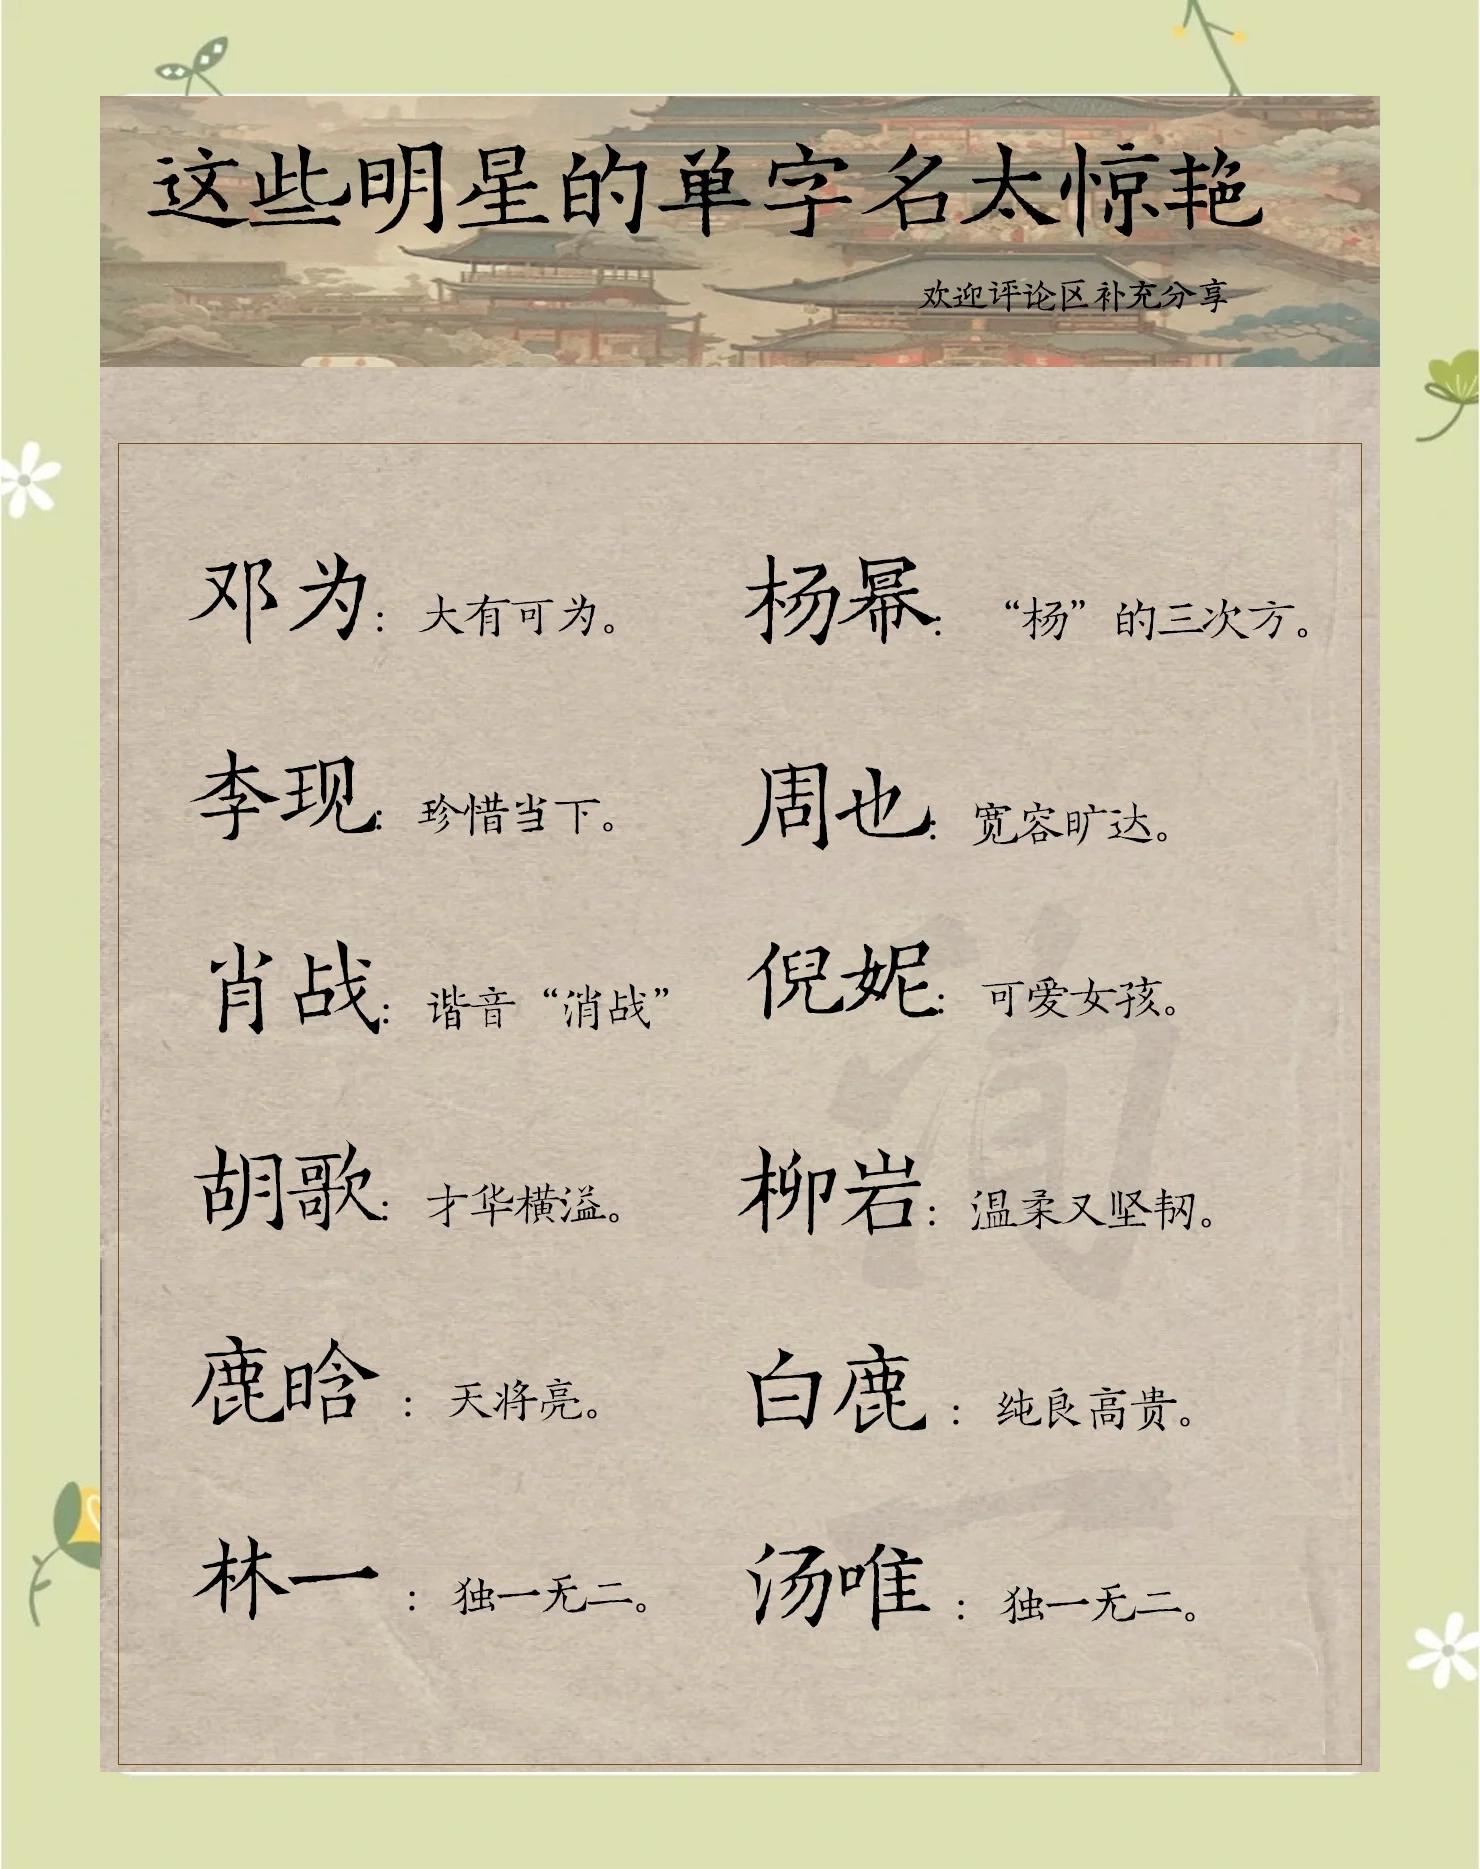 这些明星的单字名太惊艳
欢迎评论区补充分享
邓为：大有可为。
杨幂：“杨”的三次方。
李现：珍惜当下。
周也：宽容旷达。
肖战：谐音“消战”
倪妮：可爱女孩。
胡歌：才华横溢。
柳岩：温柔又坚韧。
鹿晗：天将亮。
白鹿：纯良高贵。
林一：独一无二。
汤唯：独一无二。